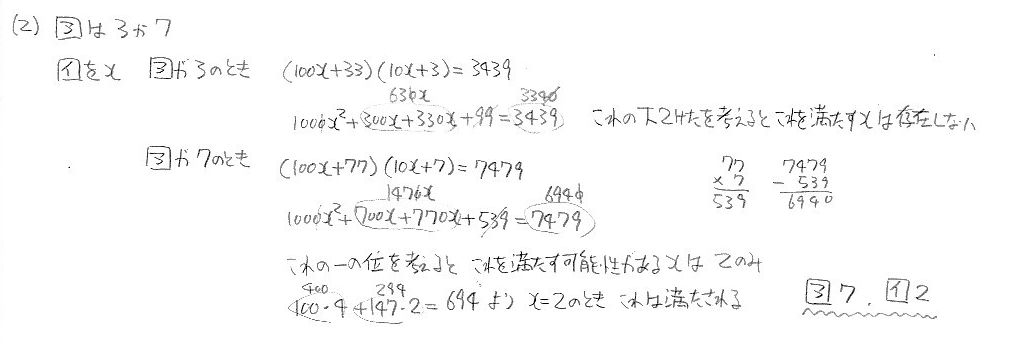 (2) ヨは3か7
イをx ヨが3のとき (100x+33)(10x+3)=3439
630x 3340
1000x²+300x+330x+99=3439 これの下2けたを考えるとこれを満たすxは存在しない
ヨが7のとき (100x+77)(10x+7)=7479
1470x 6940
1000x²+700x+770x+539=7479
77
×7
539
7479
-539
6940
これの一の位を考えると これを満たす可能性があるxは 2のみ
400 294
100・4+147・2=694 より x=2のとき これは満たされる ヨ7, イ2